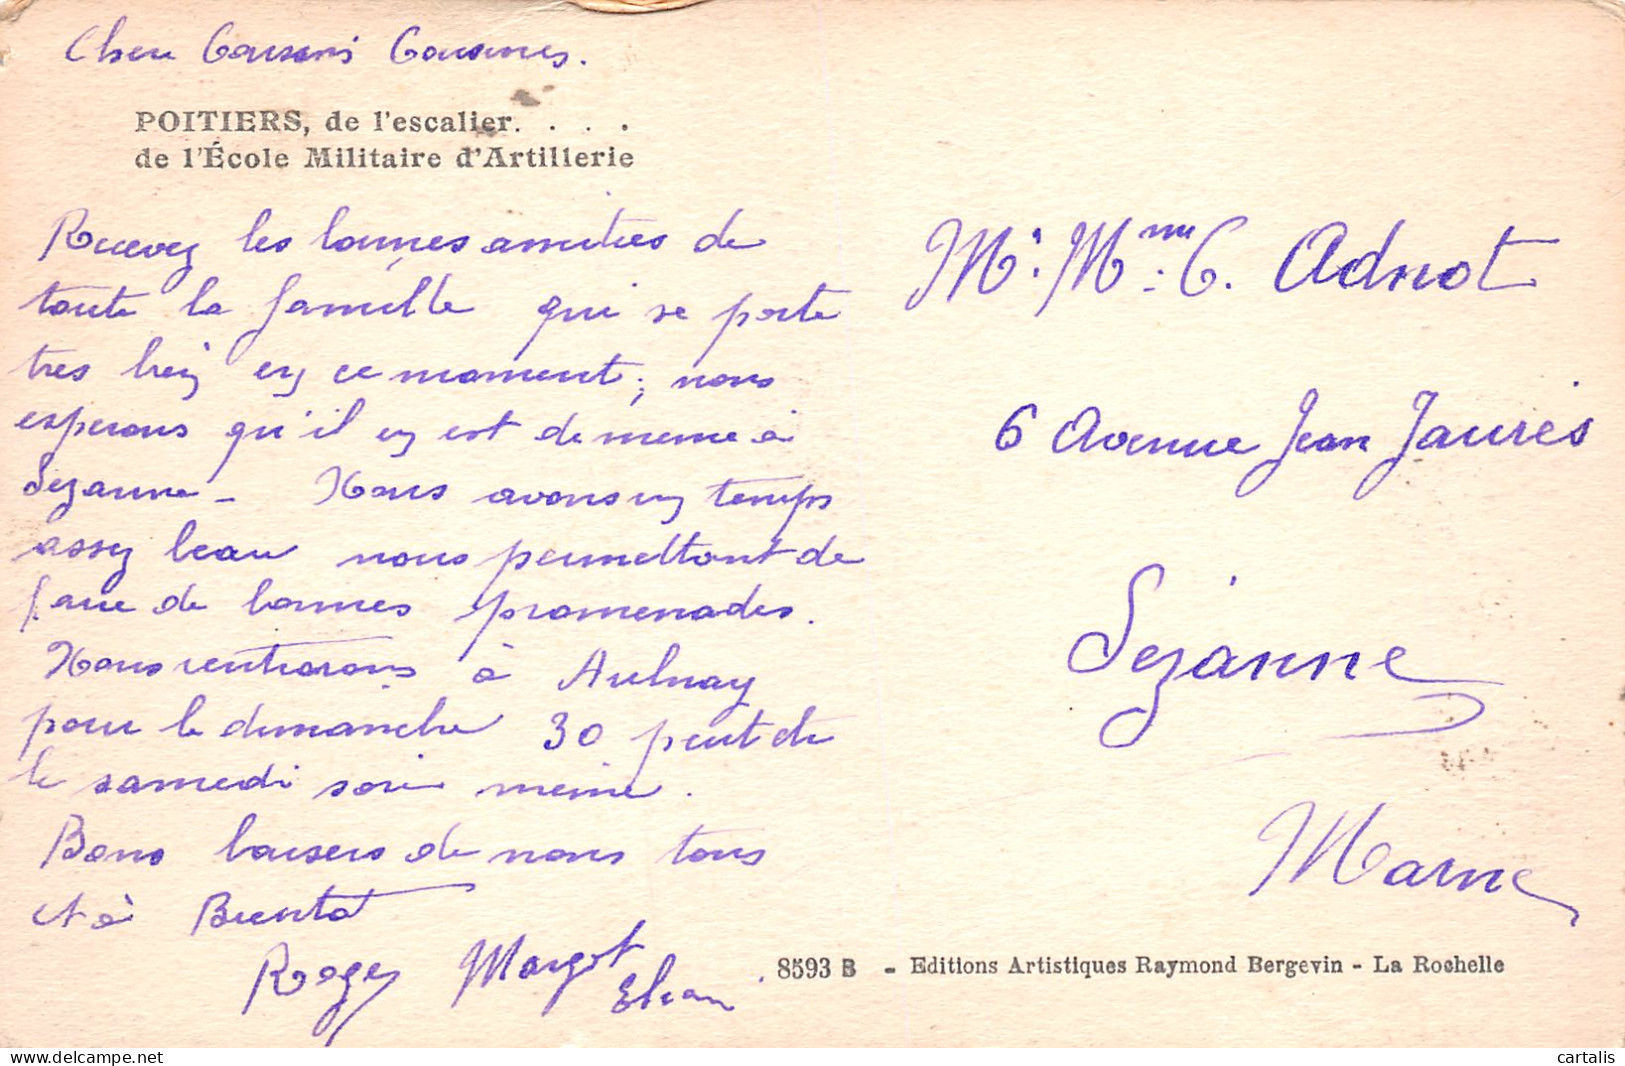 Chers Cousins Cousines.
POITIERS, de l'escalier. . . .
de l'École Militaire d'Artillerie
Recevez les bonnes amities de
toute la famille qui se porte
tres bien en ce moment; nous
esperons qu'il en est de meme à
Sezanne - Nous avons un temps
assez beau nous permettant de
faire de bonnes promenades.
Nous rentrerons à Aulnay
pour le dimanche 30 peut etre
le samedi soir meme.
Bons baisers de nous tous
et à Bientot
Roger Margot
Mr. Mme. C. Adnot
6 Avenue Jean Jaurès
Sezanne
Marne
8593 B - Editions Artistiques Raymond Bergevin - La Rochelle
cartalis